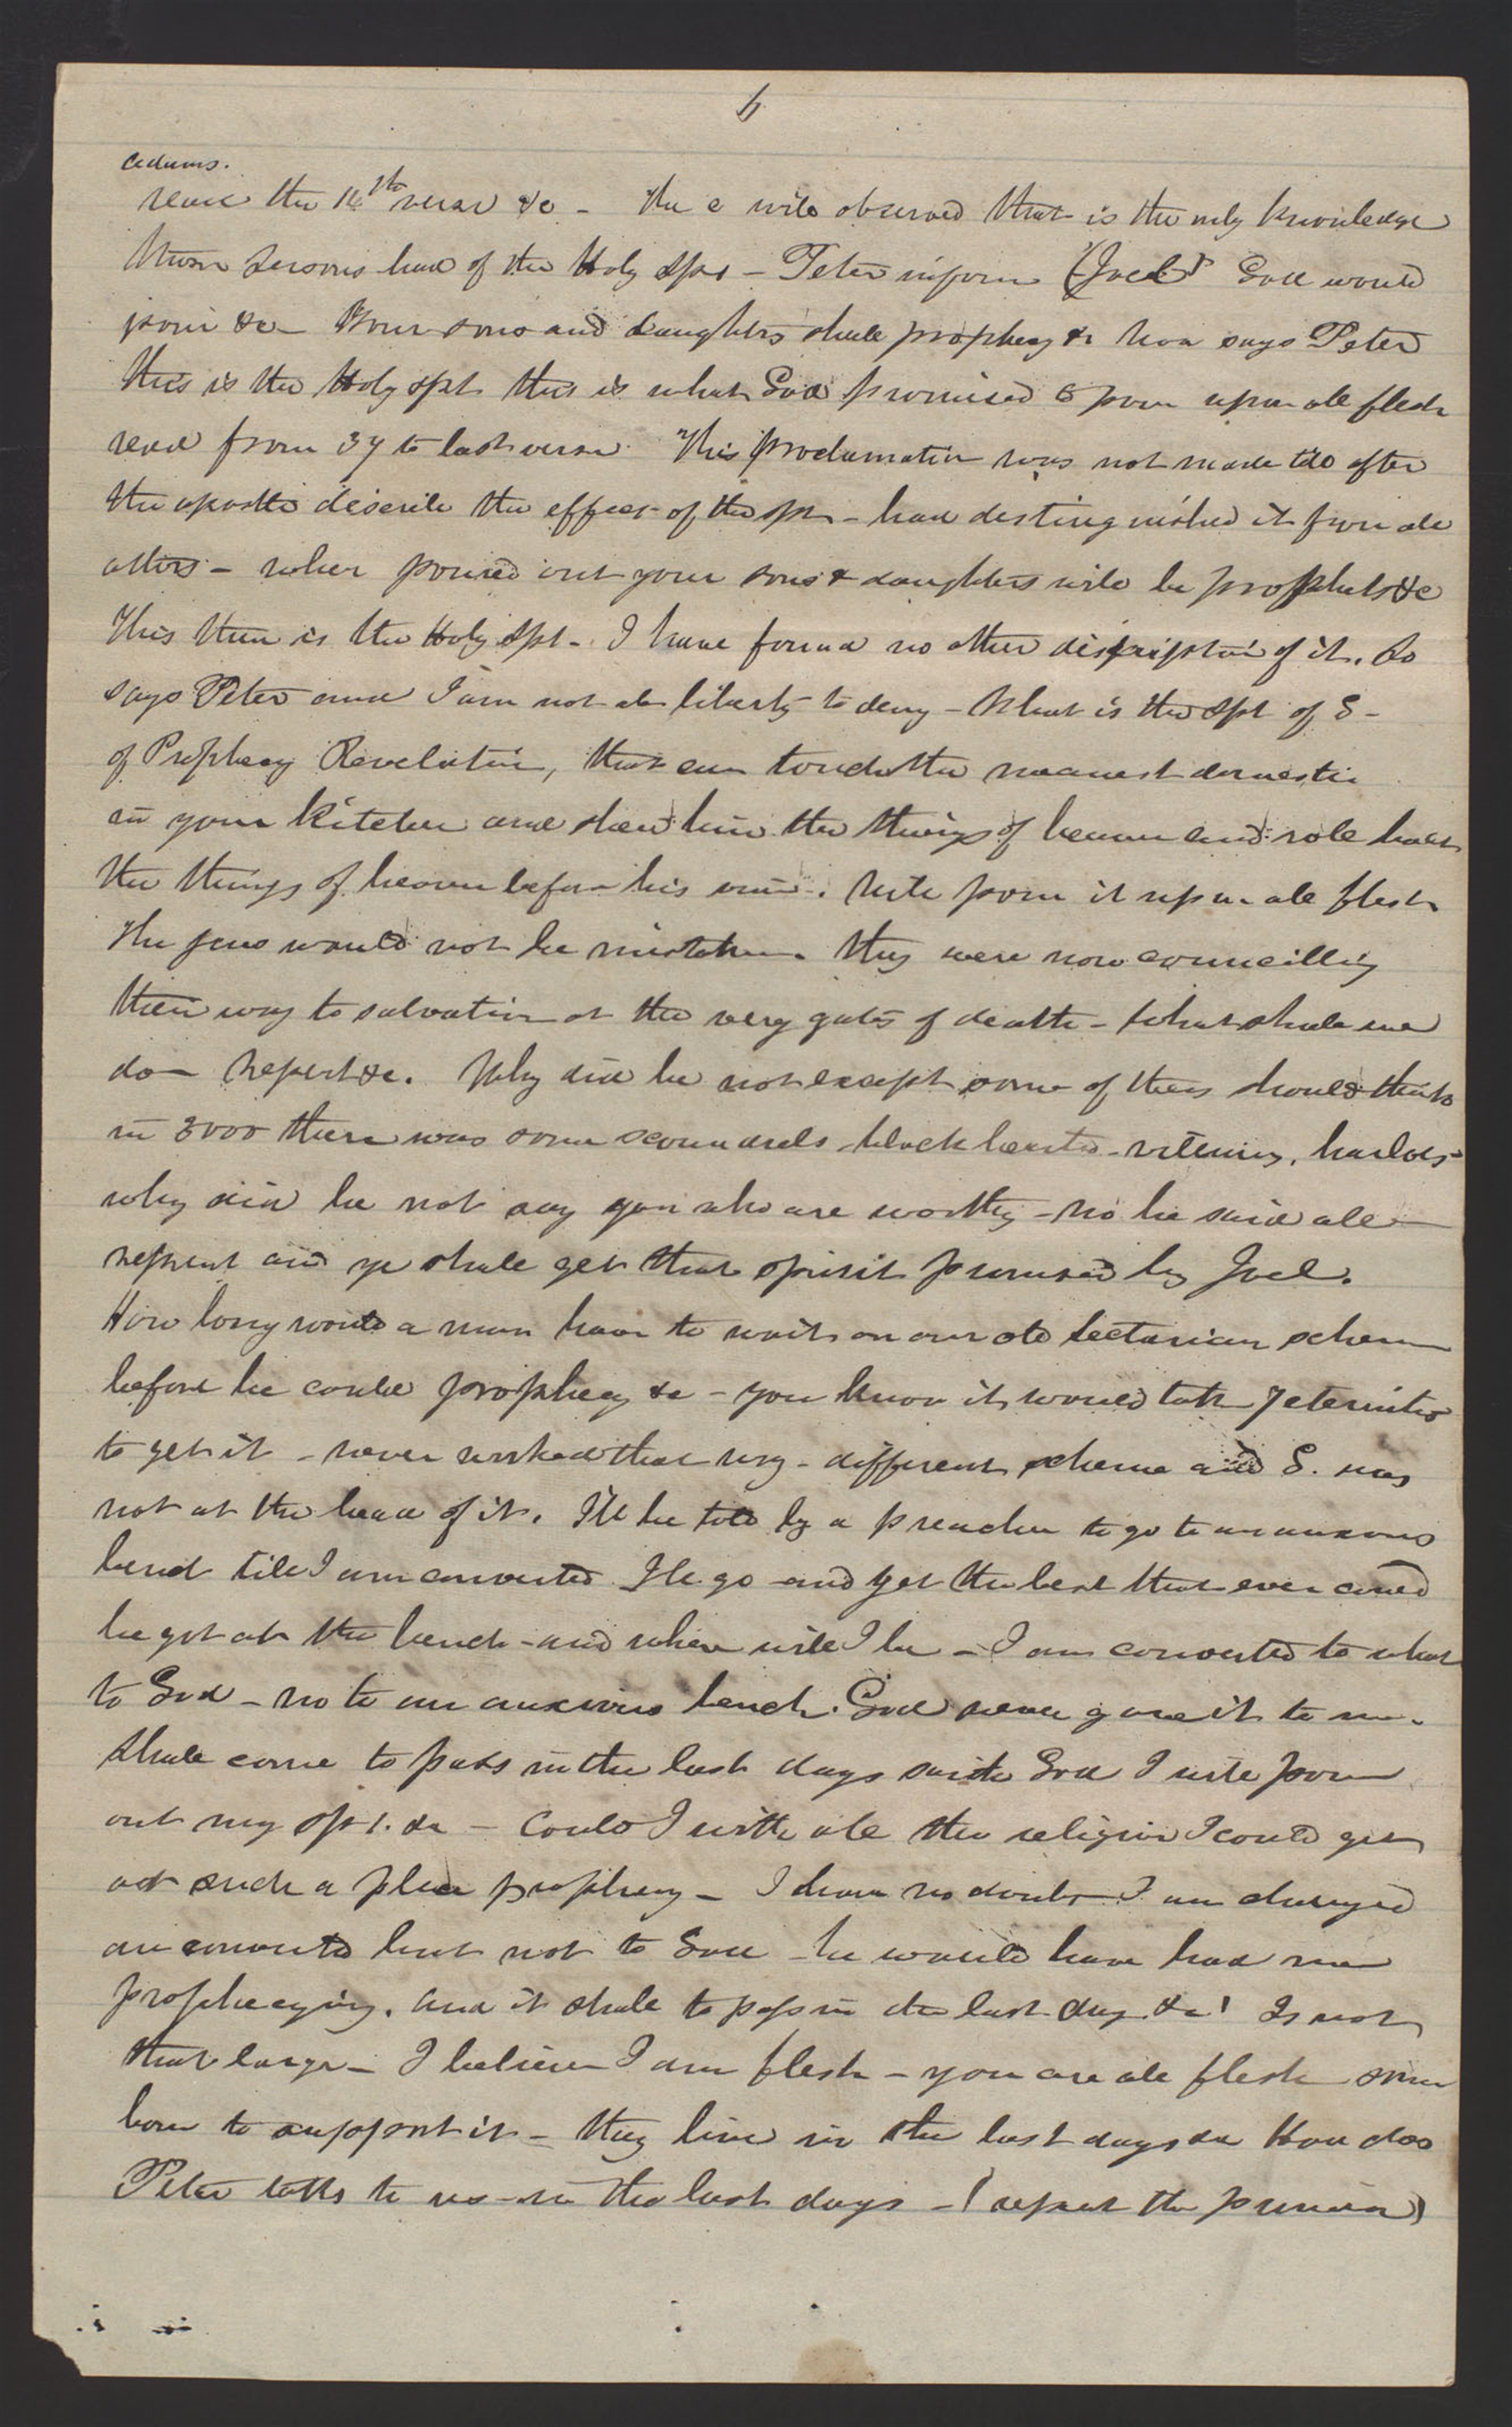 6
Adams.
read the 16th verse &c - He e will observed that is the only knowledge
those persons have of the Holy Spt - Peter inform (Joel) God would
pour &c - Your sons and daughters shall prophecy &c now says Peter
this is the Holy Spt this is what God promised to pour upon all flesh
read from 37 to last verse. This proclamation was not made till after
the apostle describe the effect of the spt - had distinguished it from all
others - when poured out your sons & daughters will be prophets &c
This then is the Holy Spt - I have found no other discription of it. So
says Peter and I am not at liberty to deny - What is the Spt of S -
of Prophecy Revelation, that can touch the meanest domestic
in your kitchen and shew him the things of heaven and role back
the things of heaven before his mind. Will pour it upon all flesh
The Jews would not be mistaken. They were now councilling
their way to salvation at the very gates of death - What shall we
do - Repent &c. Why did he not except some of them should think
in 3000 there was some scoundrels - black hearted - villains, harlots -
why did he not say you who are worthy - no he said all
repent and ye shall get that spirit promised by Joel.
How long would a man have to wait on our old sectarian scheme
before he could prophecy &c - you know it would take 7 eternities
to get it - never worked that way - different scheme and S. was
not at the head of it. I'll be told by a preacher to go to an anxious
bench till I am converted I'le go and get the best that ever could
be got at the bench - and where will I be - I am converted to what
to God - no to an anxious bench. God never gave it to me.
Shall come to pass in the last days saith God I will pour
out my spt. &c - Could I with all the religion I could get
at such a place prophecy - I have no doubt I am changed
am converted but not to God - he would have had me
propheceying. And it shall to pass in the last day &c! Is not
that large - I believe I am flesh - you are all flesh some
bone to support it - they live in the last days &c How does
Peter talk to us - in the last days - (repeat the promise)